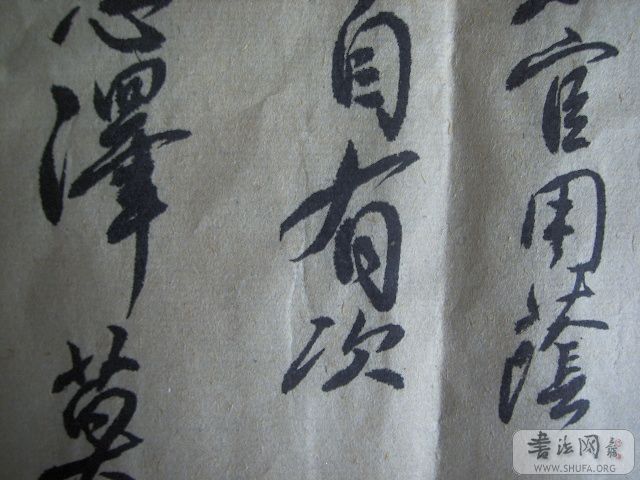 官用蔭
自有次
澤莫
書法网
WWW.SHUFA.ORG